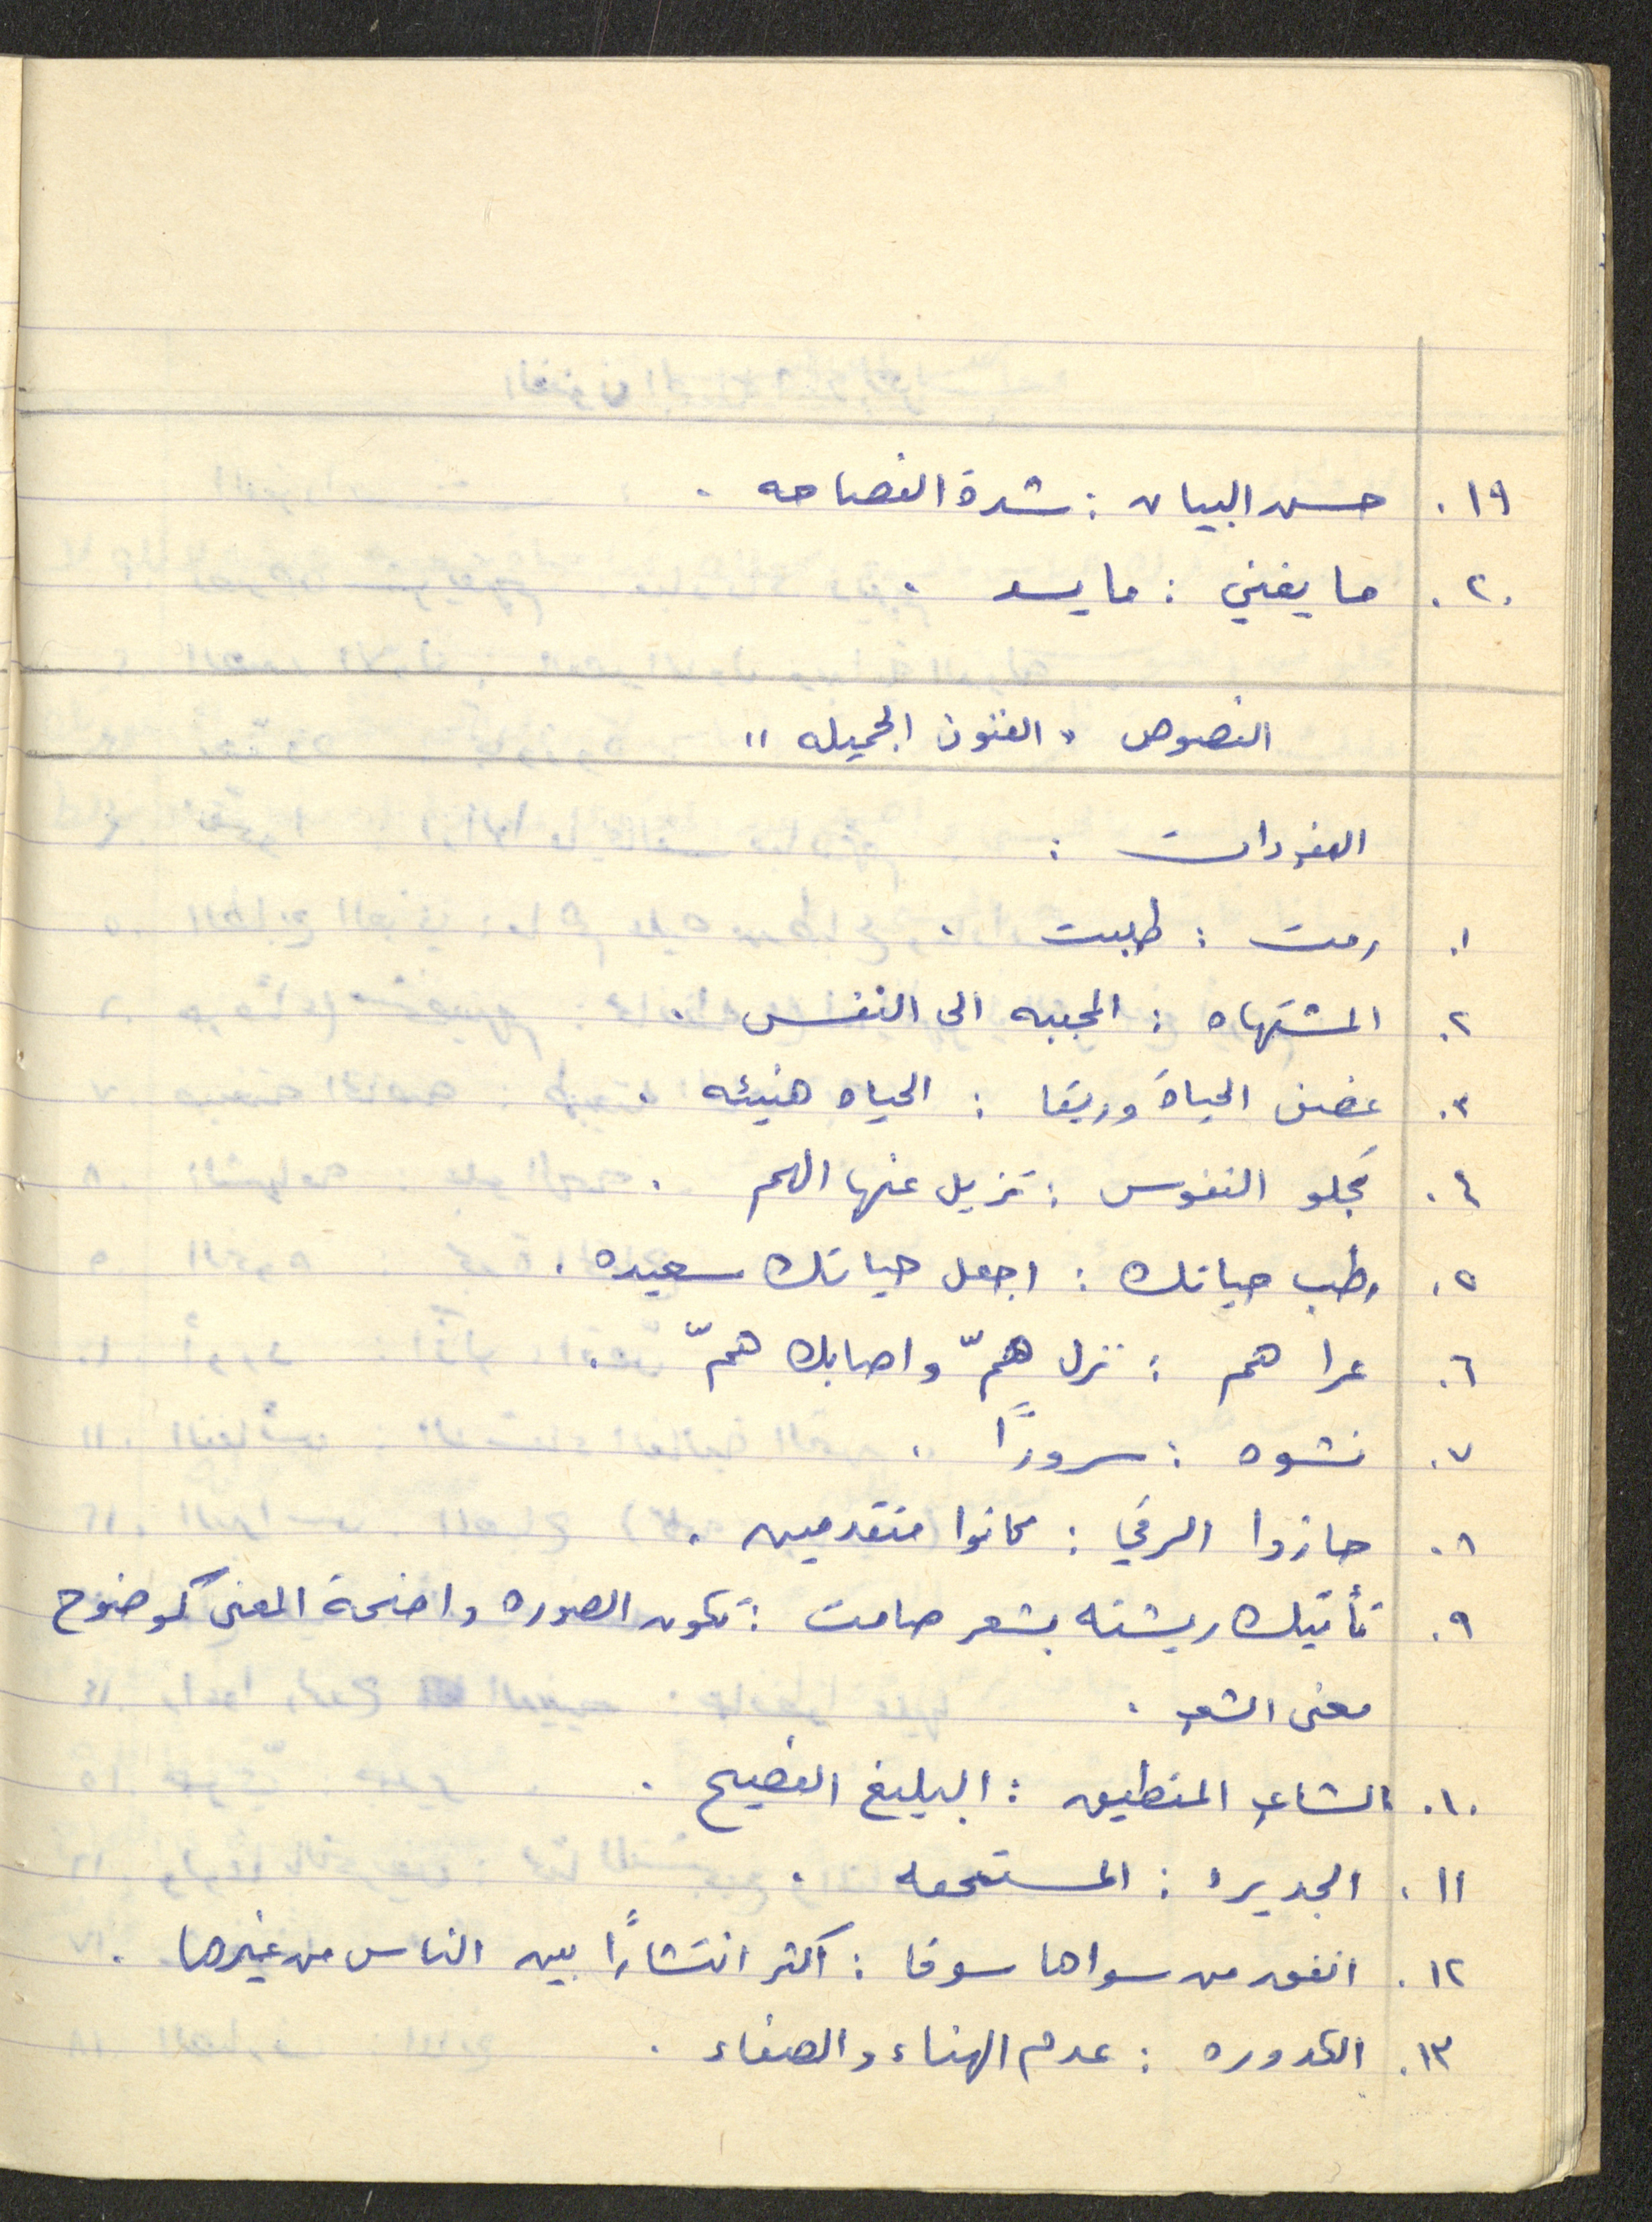 ١٩. حسن البيان : شدة الفصاحه .
٢٠. ما يغني : ما يسد .
النصوص " الفنون الجميله "
المفردات :
١. رمت : طلبت .
٢. المشتهاه : المحببه الى النفس .
٣. غصن الحياة وريقا : الحياه هنيئه .
٤. تجلو النفوس : تزيل عنها الهم .
٥. رطب حياتك : اجعل حياتك سعيده .
٦. عرا هم : نزل همّ واصابك همّ .
٧. نشوه : سرورًا .
٨. حازوا الرقي : كانوا متقدمين .
٩. تأتيك ريشته بشعر صامت : تكون الصوره واضحة المعنى كوضوح
معنى الشعر .
١٠. الشاعر المنطيق : البليغ الفصيح .
١١. الجديره : المستحقه .
١٢. انفق من سواها سوقا : اكثر انتشارًا بين الناس من غيرها .
١٣. الكدوره : عدم الهناء والصفاء .